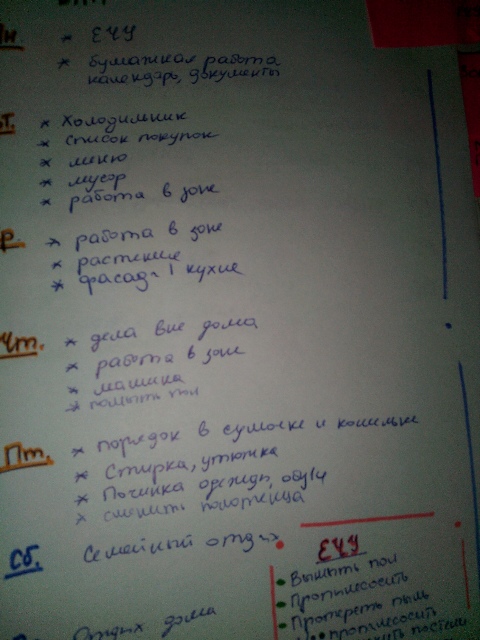 Пн.
* ЕЧУ
* бумажная работа
календарь, документы
Вт.
* Холодильник
* список покупок
* меню
* мусор
* работа в зоне
Ср.
* работа в зоне
* растение
* фасад 1 кухне
Чт.
* дела вне дома
* работа в зоне
* машина
* помыть пол
Пт.
* порядок в сумочке и кошельке
* Стирка, утюжка
* Починка одежды, обуви
* сменить полотенца
Сб. Семейный отдых
Отдых дома
ЕЧУ
• Вымыть пол
• Пропылесосить
• Протереть пыль
пропылесосить
постели